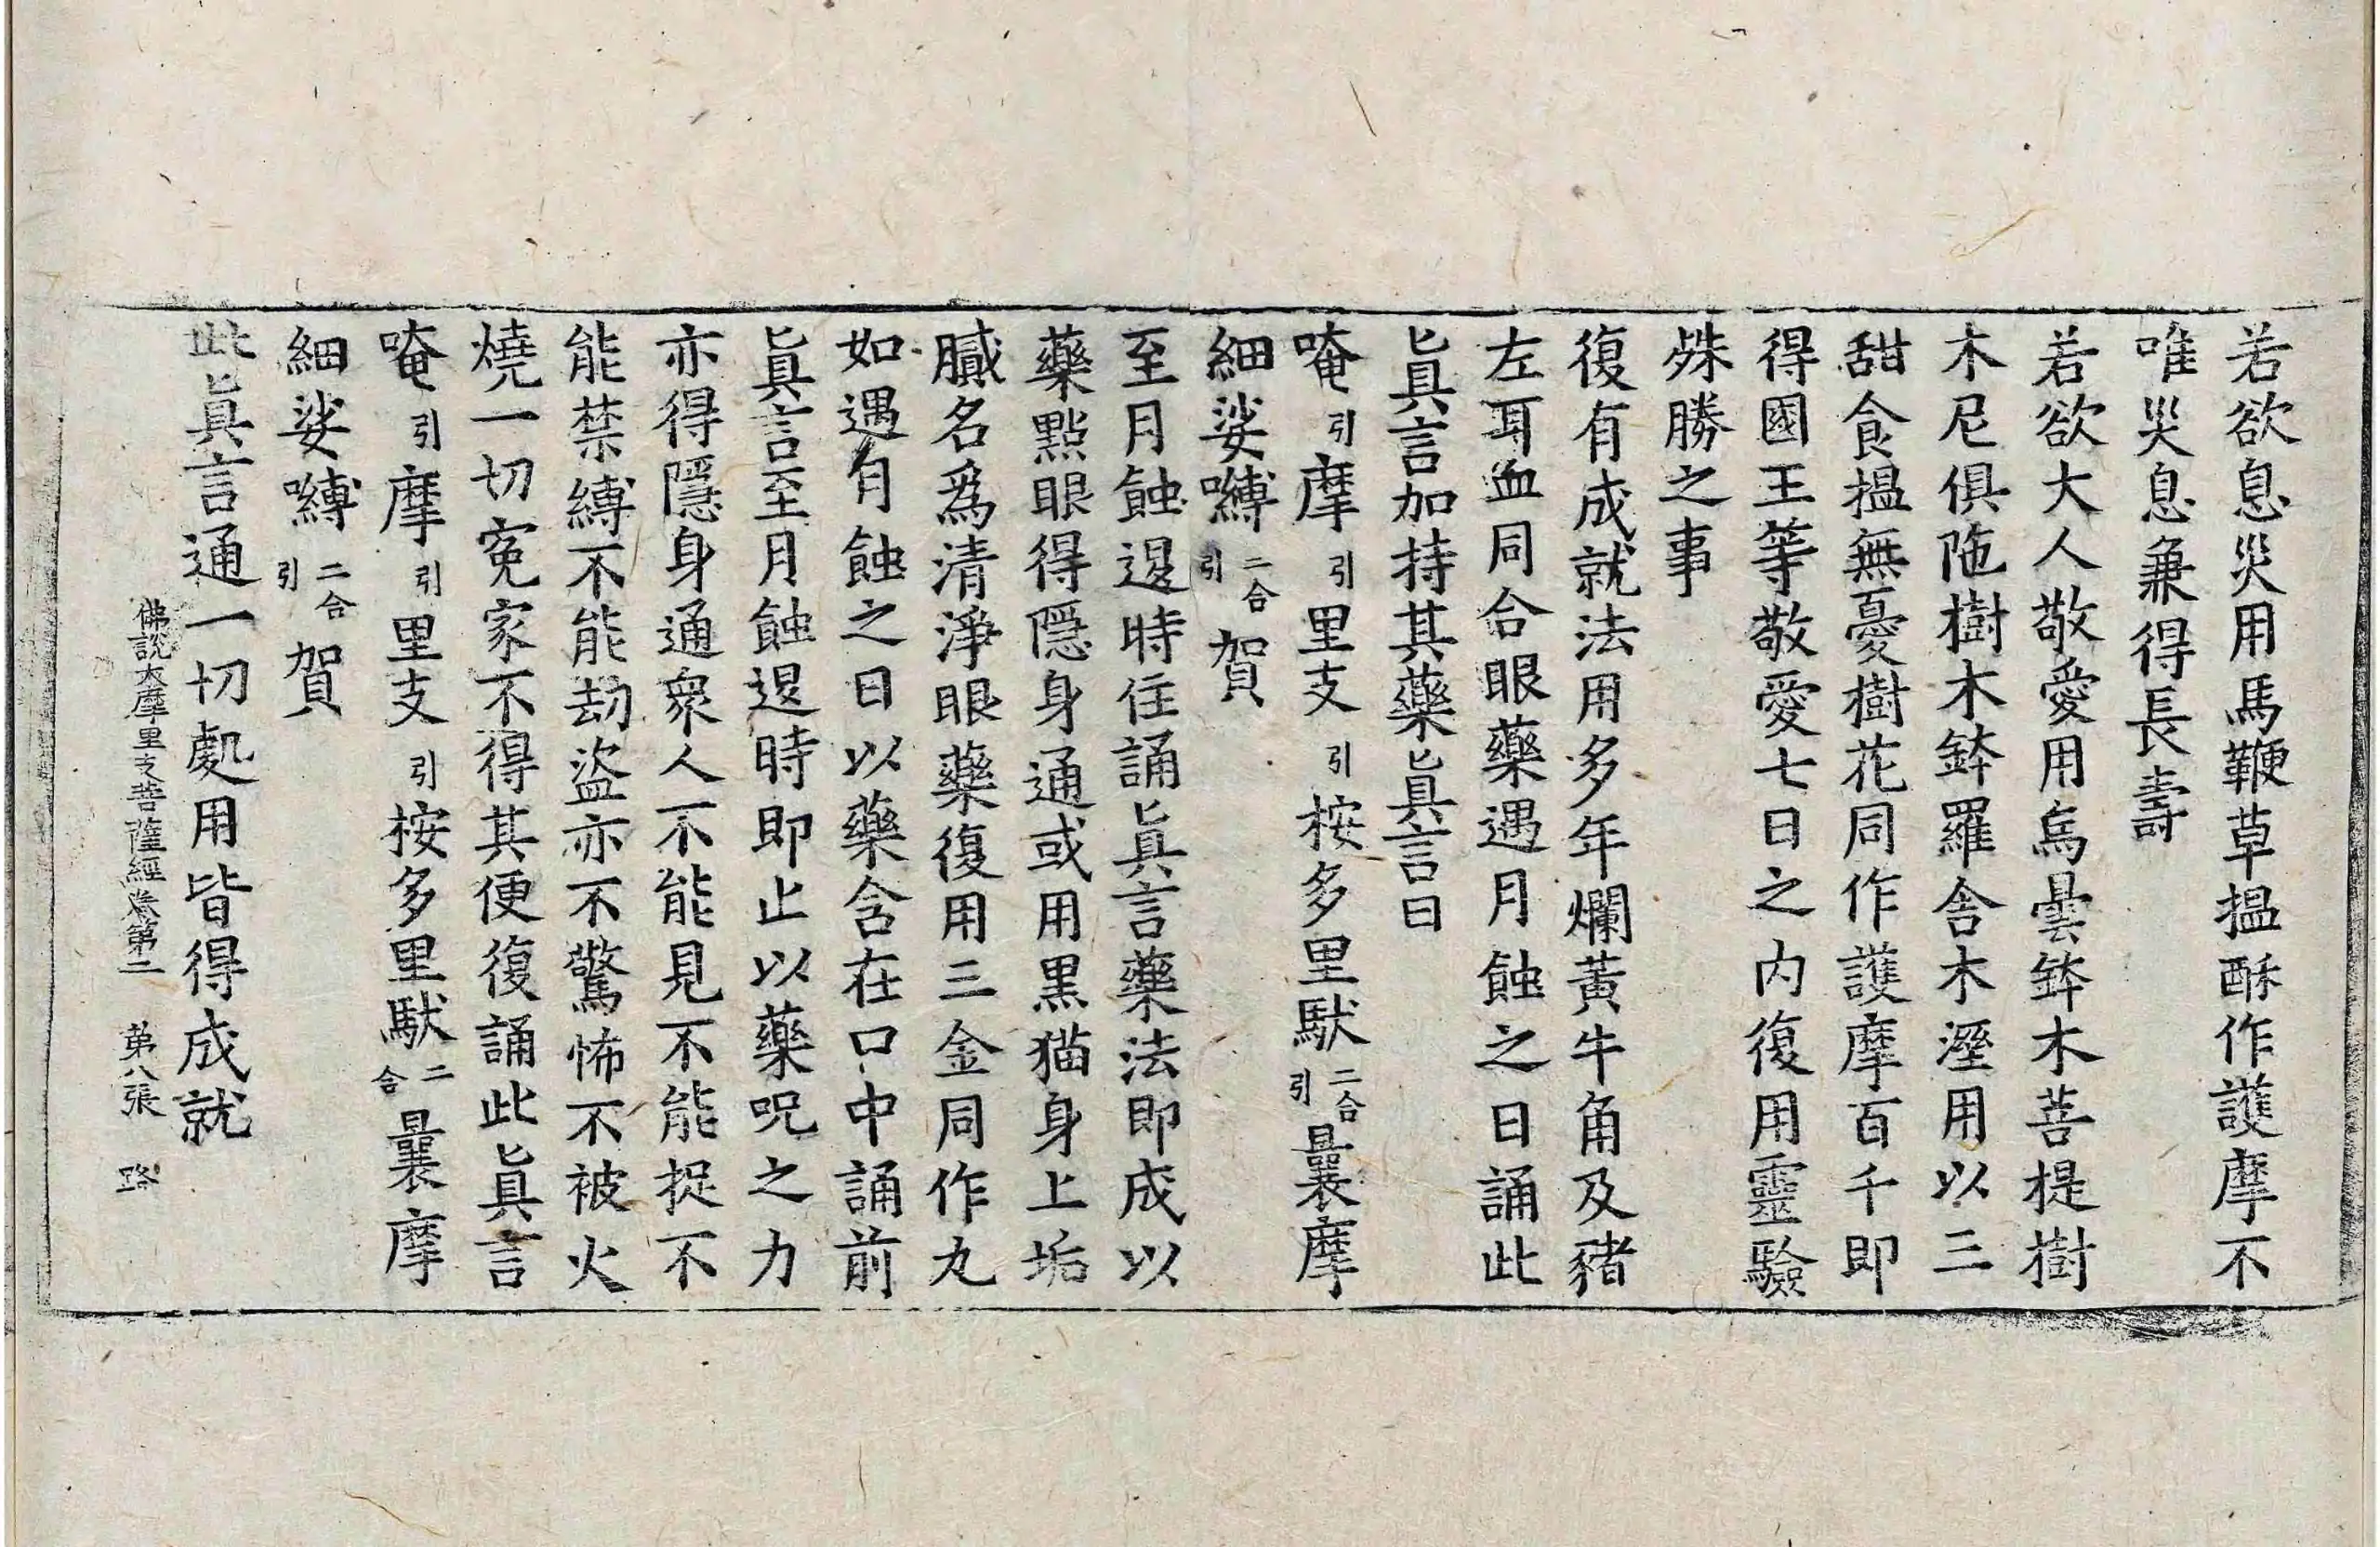 若欲息災用馬鞭草搵酥作護摩不
唯災息兼得長壽
若欲大人敬愛用烏曇鉢木菩提樹
木尼俱陁樹木鉢羅舍木溼用以三
甜食搵無憂樹花同作護摩百千即
得國王等敬愛七日之内復用靈驗
殊勝之事
復有成就法用多年爛黃牛角及豬
左耳血同合眼藥遇月蝕之日誦此
眞言加持其藥眞言曰
唵引摩引里支引桉多里馱二合引曩摩
細娑嚩二合引賀
至月蝕退時住誦眞言藥法即成以
藥點眼得隱身通或用黑猫身上垢
膩名爲清淨眼藥復用三金同作丸
如遇有蝕之日以藥含在口中誦前
眞言至月蝕退時即止以藥呪之力
亦得隱身通衆人不能見不能捉不
能禁縛不能劫盜亦不驚怖不被火
燒一切寃家不得其便復誦此眞言
唵引摩引里支引桉多里馱二合曩摩
細娑嚩二合引賀
此眞言通一切處用皆得成就
佛說大摩里支菩薩經卷第二 第八張 路